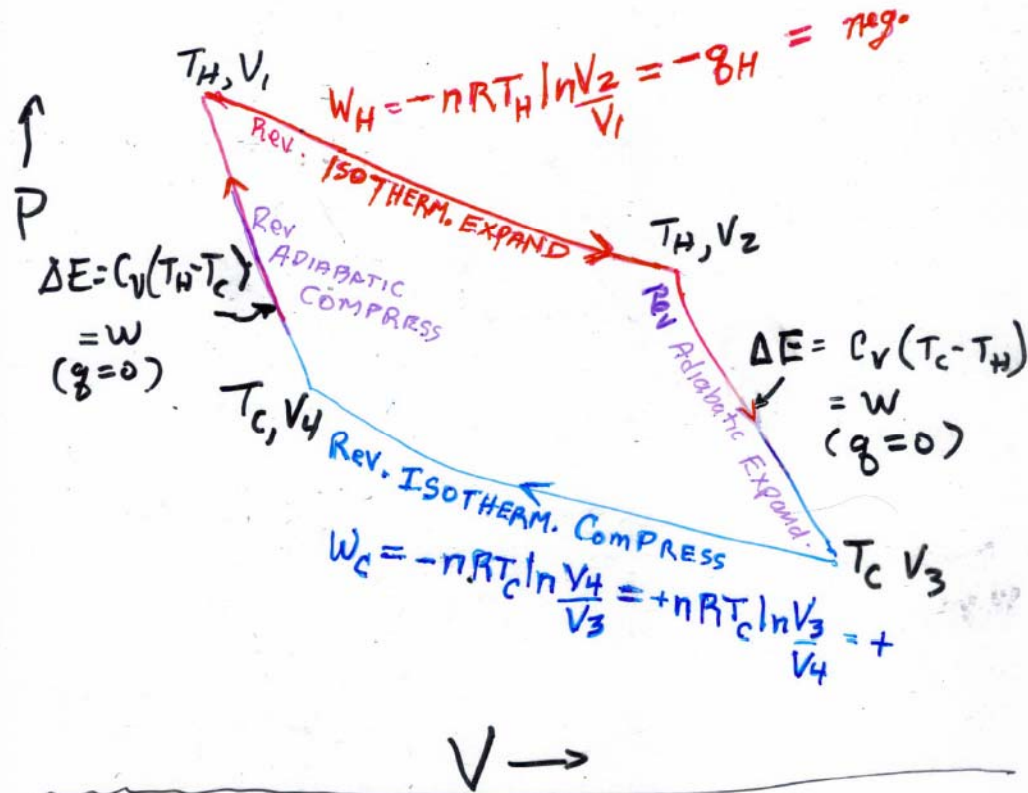 T_H, V_1
W_H = -nRT_H ln V_2/V_1 = -q_H = neg.
Rev. ISOTHERM. EXPAND
P
T_H, V_2
Rev
ADIABATIC
COMPRESS
ΔE = C_V(T_H-T_C)
= W
(q=0)
Rev Adiabatic Expand.
ΔE = C_V(T_C-T_H)
= W
(q=0)
T_C, V_4
Rev. ISOTHERM. COMPRESS
T_C V_3
W_C = -nRT_C ln V_4/V_3 = +nRT_C ln V_3/V_4 = +
V